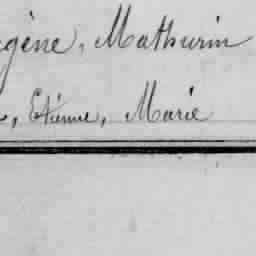 gène, Mathurin
, Etienne, Marie